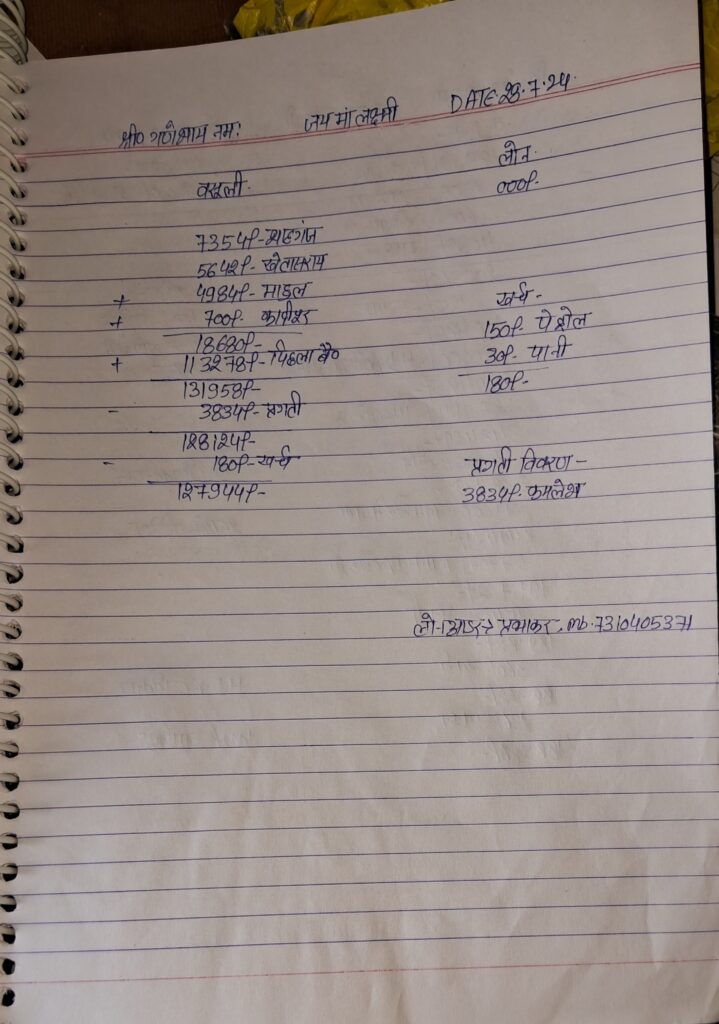 श्री० गणेशाय नमः जय मां लक्ष्मी DATE-23.7.24
वसूली. लोन.
000/-
7354/- शाहगंज
5642/- खेतासराय
+ 4984/- माडल खर्च -
+ 700/- 150/- पेट्रोल
18680/- 30/- पानी
+ 113278/- पिछला बै० 180/-
131958/-
- 3834/- प्रगती
128124/-
- 180/- खर्च प्रगती विवरण -
127944/- 3834/- कमलेश
प्रभाकर, mb. 7310405371